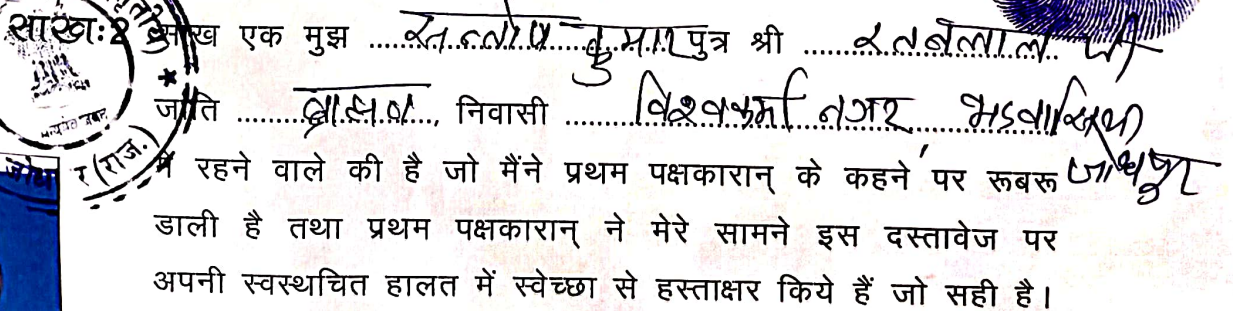 साखः2 साख एक मुझ ...सन्तोष कुमार पुत्र श्री ...रतनलाल जी
जाति ...ब्राह्मण..., निवासी ...विश्वकर्मा नगर
जोधपुर
में रहने वाले की है जो मैंने प्रथम पक्षकारान् के कहने पर रूबरू
र (राज.)
डाली है तथा प्रथम पक्षकारान् ने मेरे सामने इस दस्तावेज पर
अपनी स्वस्थचित हालत में स्वेच्छा से हस्ताक्षर किये हैं जो सही है।